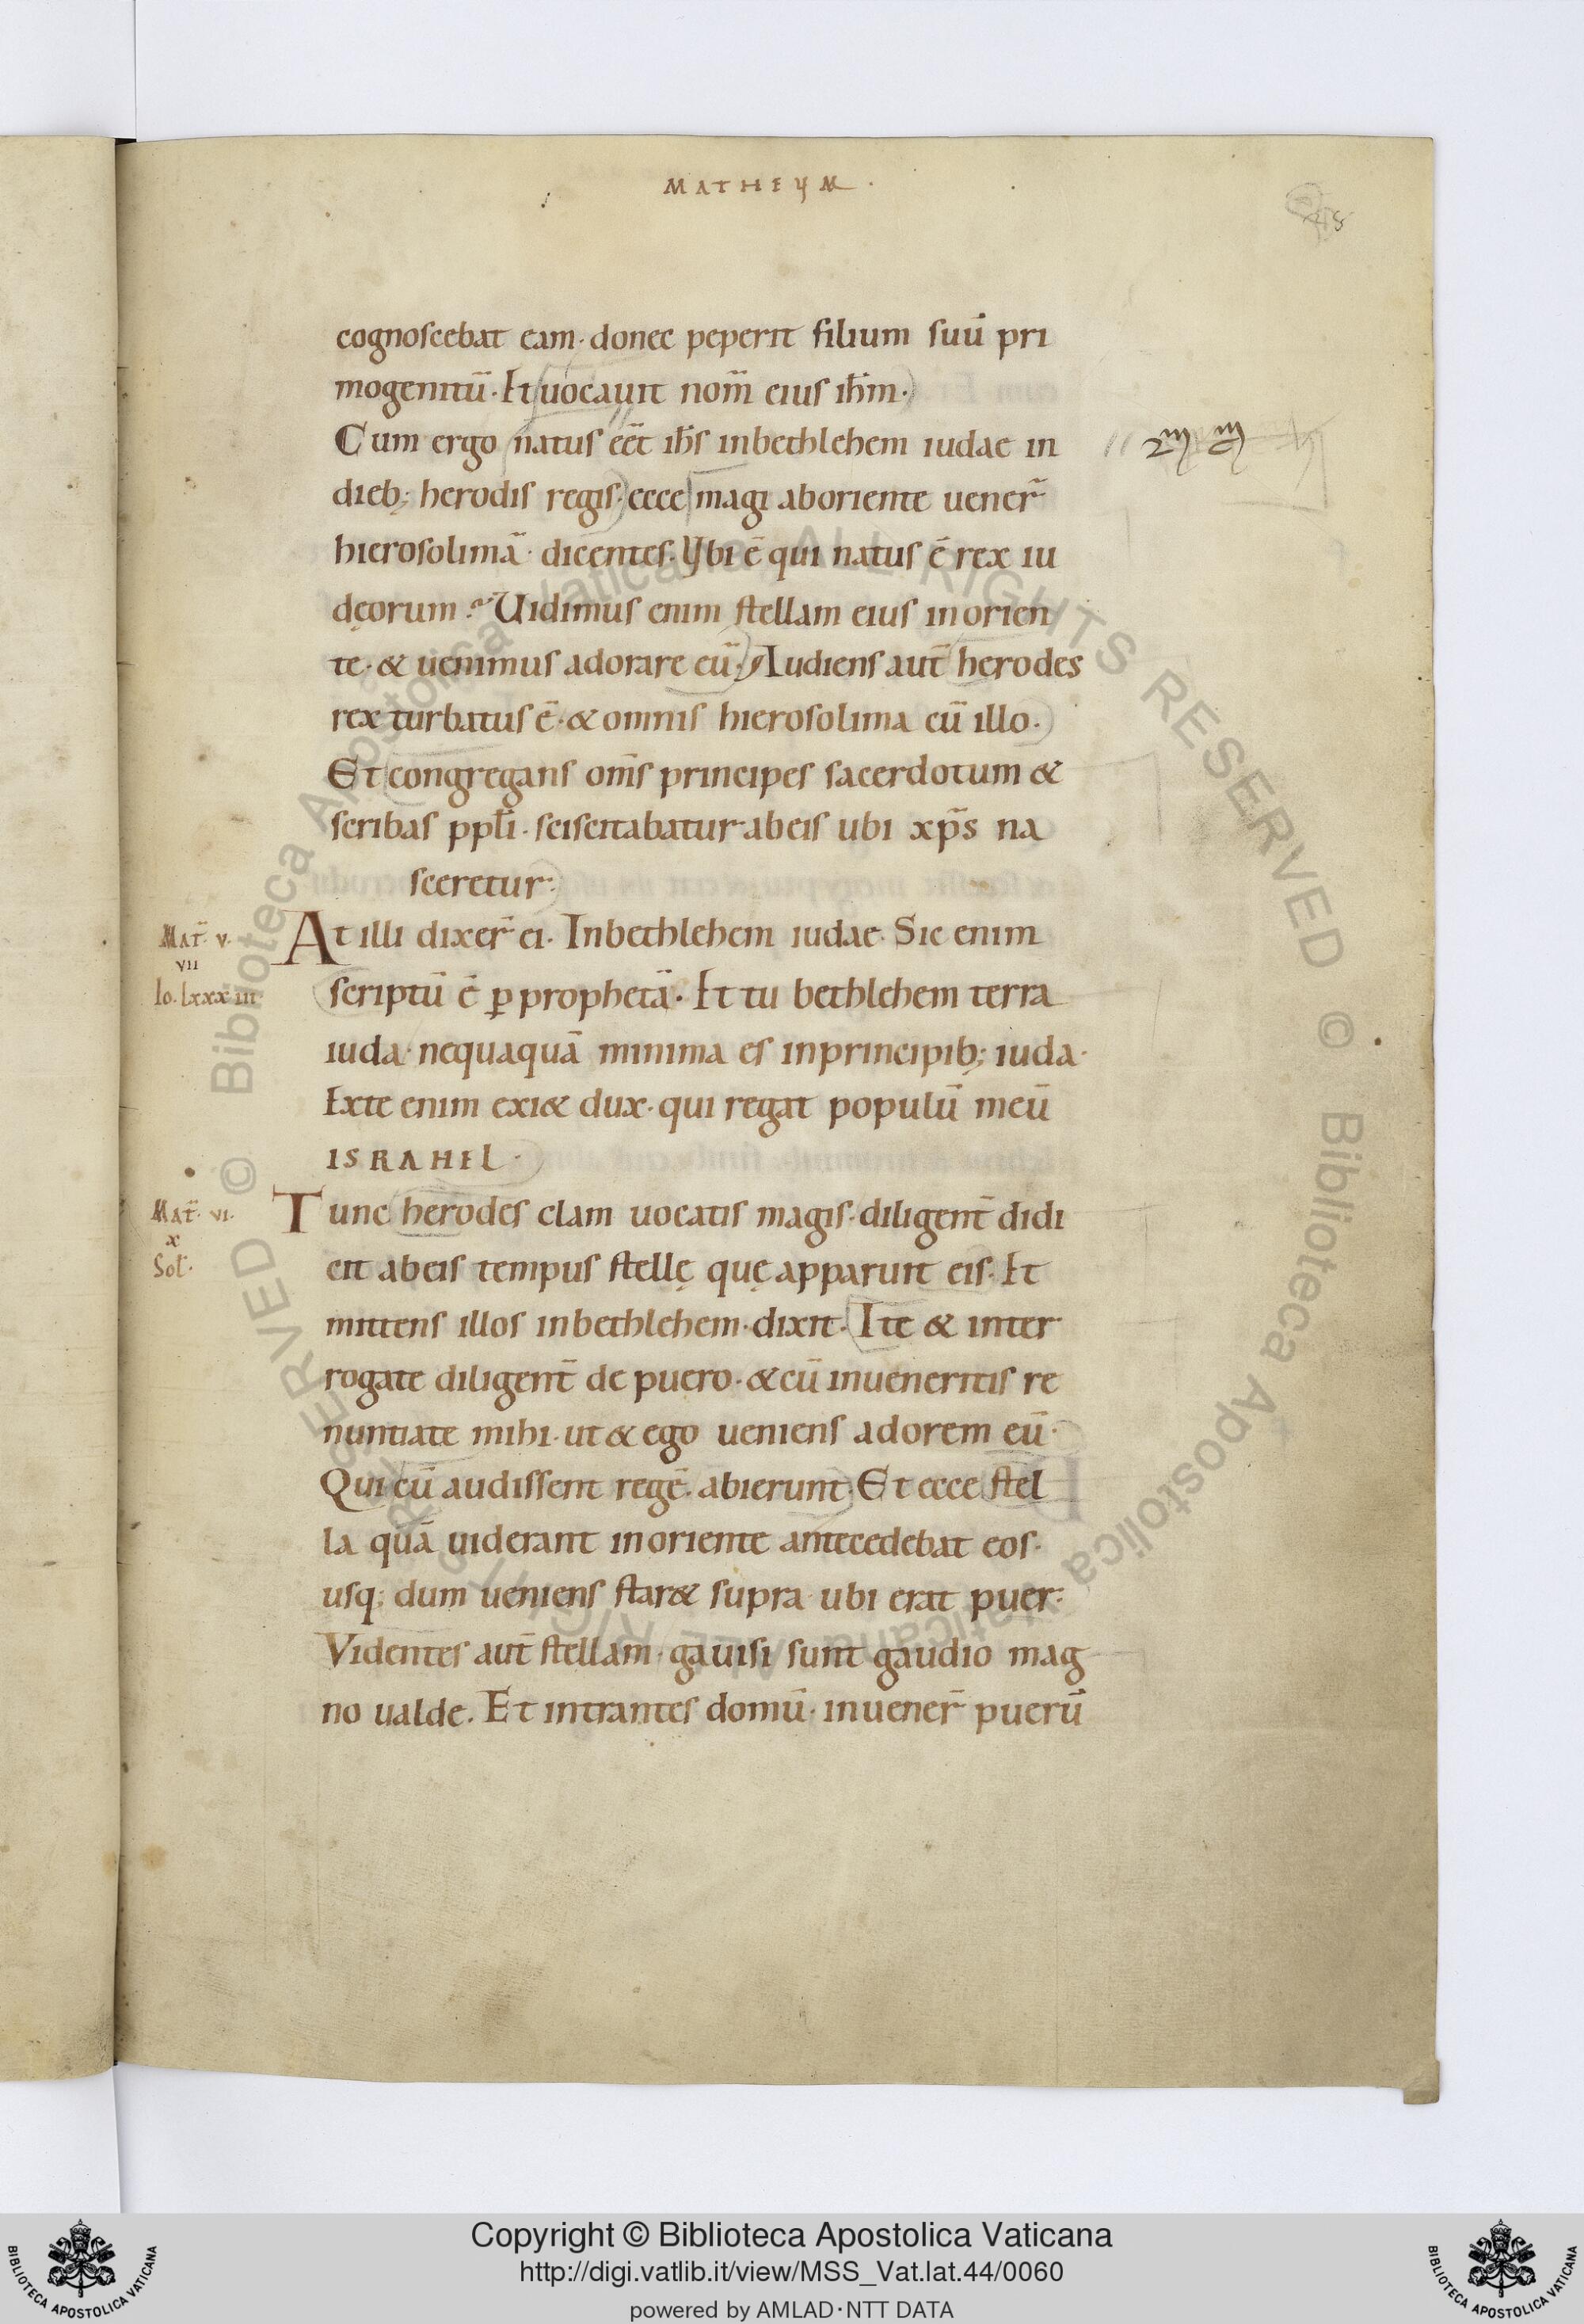 MATHEUM.
cognoscebat eam. donec peperit filium suū pri
mogenitū. Et uocauit nom̄ eius ihm̄.
Cum ergo natus eēt ihs̄ inbethlehem iudae in
dieb; herodis regis. ecce magi aboriente uener̄
hierosolimā. dicentes. Ubi ē qui natus ē rex iu
dęorum? Uidimus enim stellam eius inorien
te. & uenimus adorare eū. Audiens aut̄ herodes
rex turbatus ē. & omnis hierosolima cū illo.
Et congregans om̄s principes sacerdotum &
scribas ppłi. sciscitabatur abeis ubi xp̄s na
sceretur.
Mat̄. v.
vii
Io. lxxxiii
At illi dixer̄ ei. Inbethlehem iudae. Sic enim
scriptū ē ꝑ prophetā. Et tu bethlehem terra
iuda. nequaquā minima es inprincipib; iuda.
Exte enim exi& dux. qui regat populū meū
ISRAHEL.
Mat̄. vi.
x
Sol.
Tunc herodes clam uocatis magis. diligent̄ didi
cit abeis tempus stellę quę apparuit eis. Et
mittens illos inbethlehem. dixit. Ite & inter
rogate diligent̄ de puero. & cū inueneritis re
nuntiate mihi. ut & ego ueniens adorem eū.
Qui cū audissent regē. abierunt. Et ecce stel
la quā uiderant inoriente antecedebat eos.
usq; dum ueniens star& supra ubi erat puer.
Videntes aut̄ stellam. gauisi sunt gaudio mag
no ualde. Et intrantes domū. inuener̄ puerū
Copyright © Biblioteca Apostolica Vaticana
http://digi.vatlib.it/view/MSS_Vat.lat.44/0060
powered by AMLAD·NTT DATA
BIBLIOTECA APOSTOLICA VATICANA
BIBLIOTECA APOSTOLICA VATICANA
© Biblioteca Apostolica Vaticana ALL RIGHTS RESERVED © Biblioteca Apostolica Vaticana ALL RIGHTS RESERVED